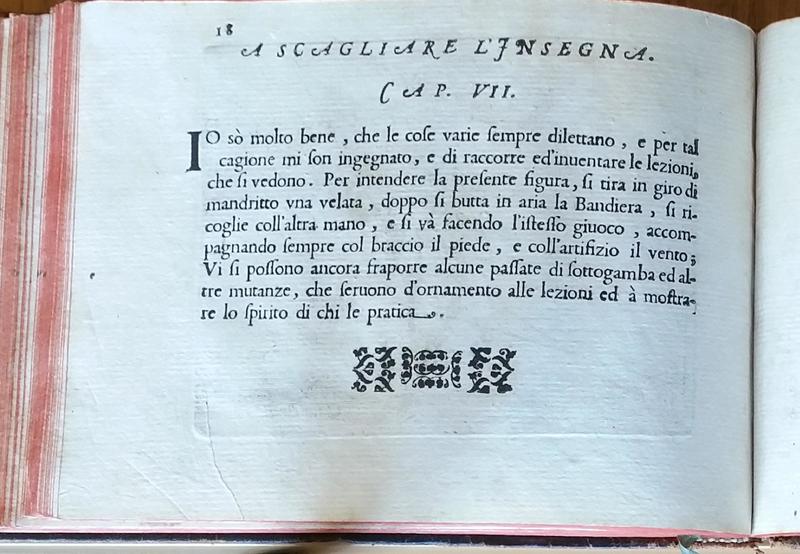 18
A SCAGLIARE L'INSEGNA.
CAP. VII.
IO sò molto bene , che le coſe varie ſempre dilettano , e per tal
cagione mi ſon ingegnato, e di raccorre ed'inuentare le lezioni,
che ſi vedono. Per intendere la preſente figura, ſi tira in giro di
mandritto vna velata , doppo ſi butta in aria la Bandiera , ſi ri-
coglie coll'altra mano , e ſi và facendo l'iſteſſo giuoco , accom-
pagnando ſempre col braccio il piede , e coll'artifizio il vento;
Vi ſi poſſono ancora fraporre alcune paſſate di ſottogamba ed al-
tre mutanze, che ſeruono d'ornamento alle lezioni ed à moſtra-
re lo ſpirito di chi le pratica.